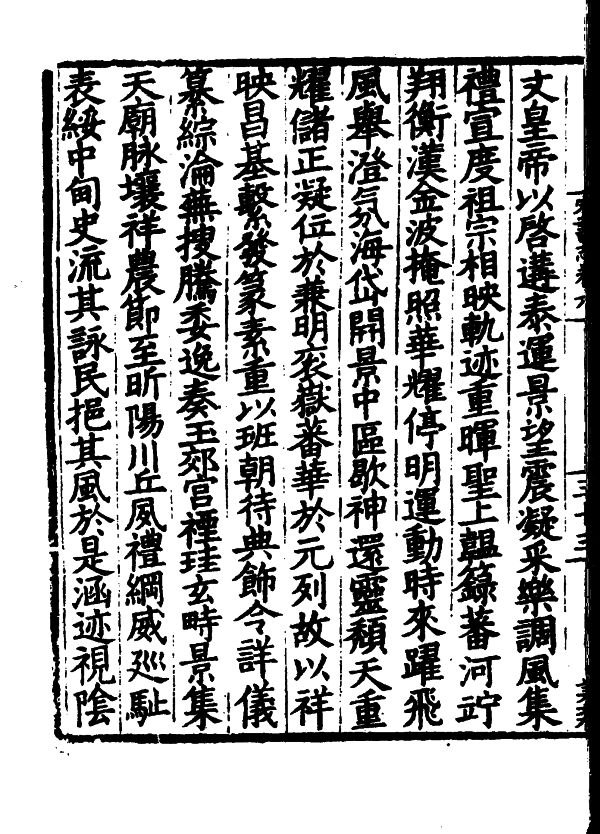 文皇帝以啓遘泰運景望震凝采樂調風集
禮宣度祖宗相映軌迹重暉聖上韞籙蕃河竚
翔衡漢金波掩照華耀停明運動時來躍飛
風舉澄氛海岱開景中區歇神還靈頹天重
耀儲正凝位於兼明衮嶽蕃華於元列故以祥
映昌基繫發篆素重以班朝待典飾令詳儀
纂綜淪蕪搜騰委逸奏玉郊宫禋珪玄畤景集
天廟脉壤祥農節至昕陽川丘夙禮綱威巡駐
表綏中甸史流其詠民挹其風於是涵迹視陰